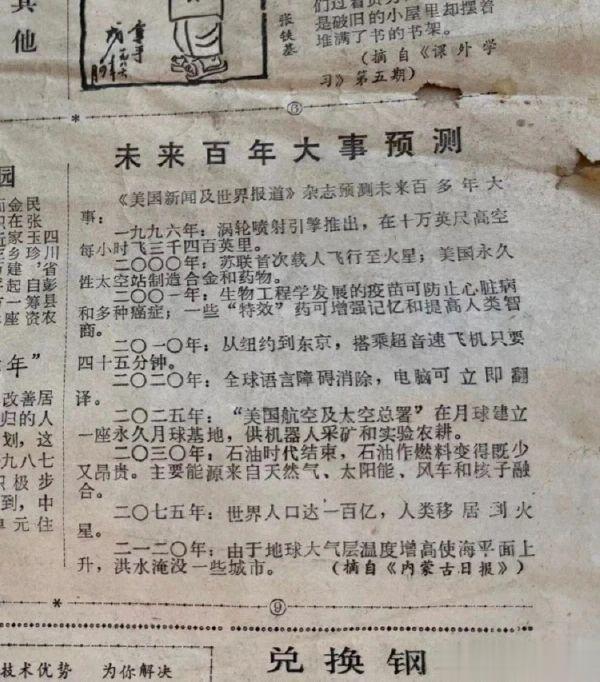 其
他
张铁基
是破旧的小屋里却摆着
堆满了书的书架。
(摘自《课外学
习》第五期)
⑥
未来百年大事预测
《美国新闻及世界报道》杂志预测未来百多年大
事:
一九九六年:涡轮喷射引擎推出,在十万英尺高空
每小时飞三千四百英里。
二〇〇〇年:苏联首次载人飞行至火星;美国永久
性太空站制造合金和药物。
二〇〇一年:生物工程学发展的疫苗可防止心脏病
和多种癌症;一些“特效”药可增强记忆和提高人类智
商。
二〇一〇年:从纽约到东京,搭乘超音速飞机只要
四十五分钟。
二〇二〇年:全球语言障碍消除,电脑可立即翻
译。
二〇二五年:“美国航空及太空总署”在月球建立
一座永久月球基地,供机器人采矿和实验农耕。
二〇三〇年:石油时代结束,石油作燃料变得既少
又昂贵。主要能源来自天然气、太阳能、风车和核子融
合。
二〇七五年:世界人口达一百亿,人类移居到火
星。
二一二〇年:由于地球大气层温度增高使海平面上
升,洪水淹没一些城市。(摘自《内蒙古日报》)
⑨
园
四川省彭县
民张玉珍,自筹资
年”
改善居
归的人
划,这
九八七
积极步
到,中
单元住
技术优势 为你解决
兑换钢